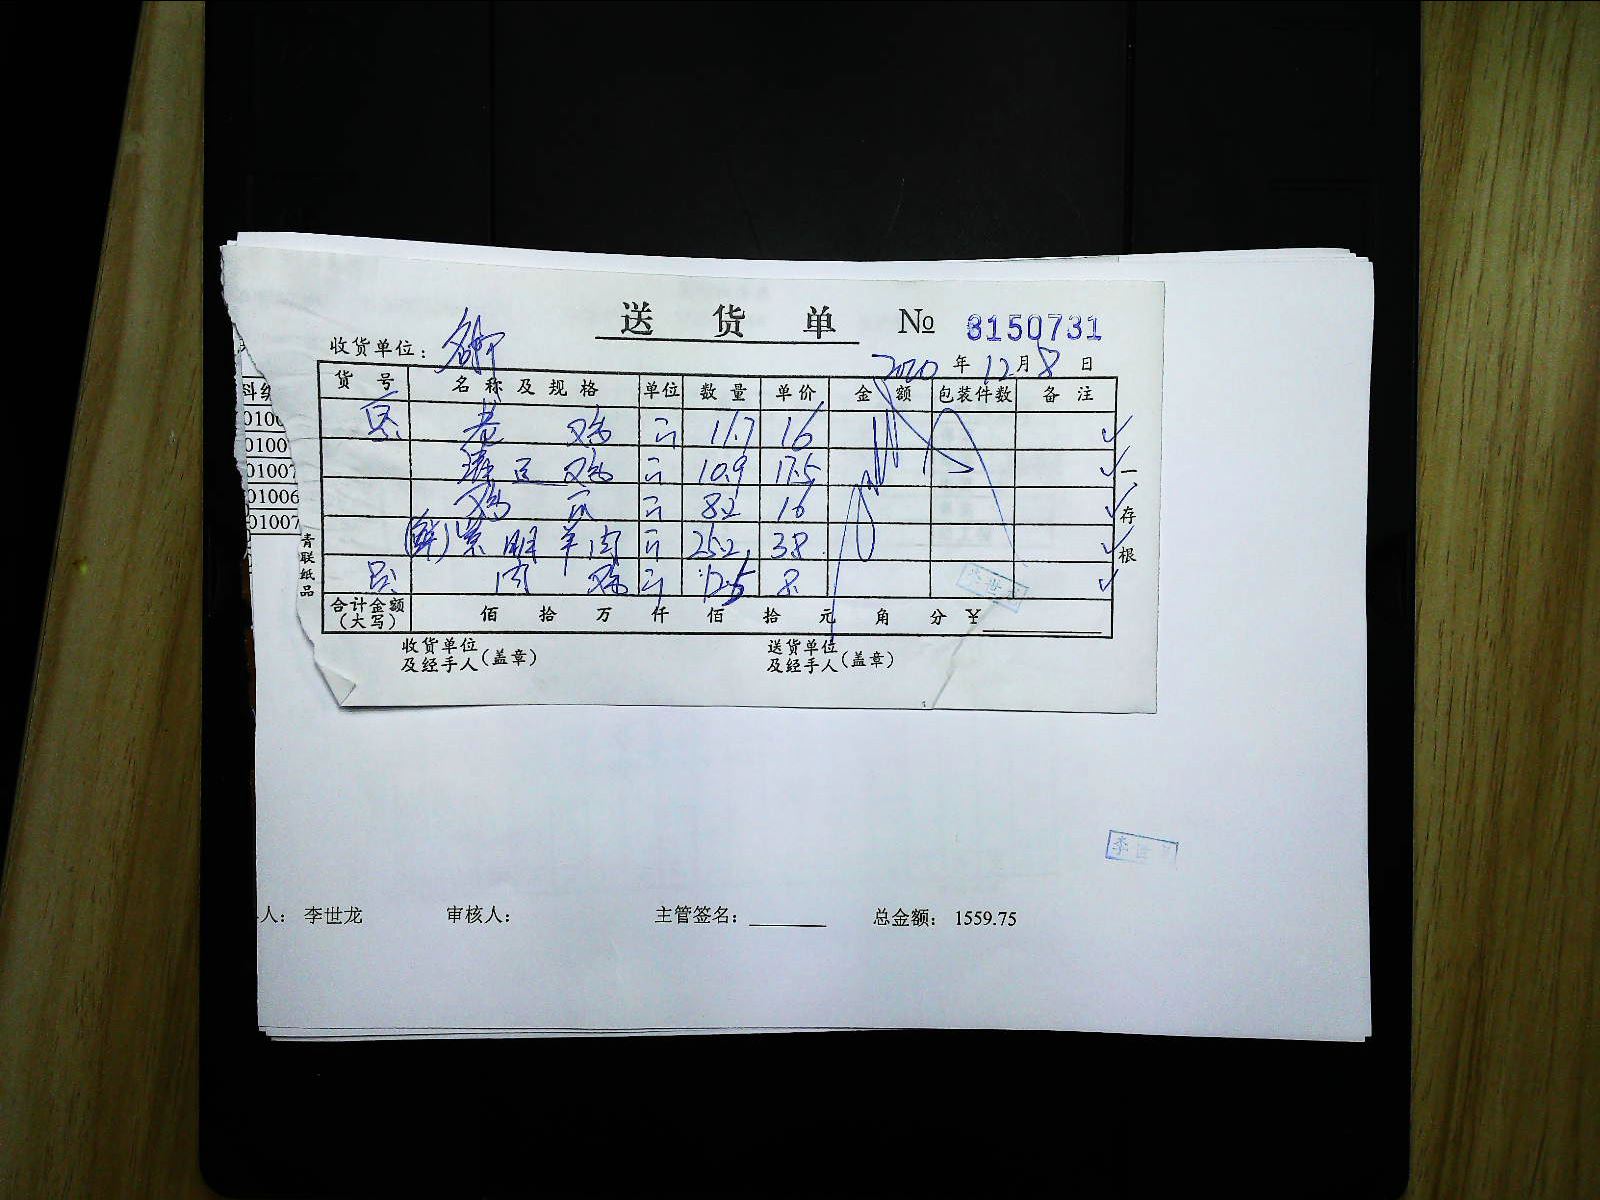 送货单 № 3150731
收货单位:
2020年12月8日
货号 名称及规格 单位 数量 单价 金额 包装件数 备注
老鸡 斤 11.7 16 ✓
清远鸡 斤 10.9 17.5 ✓
鸡 斤 8.2 16 ✓
(鲜)黑明羊肉 斤 25.2 38 ✓
肉鸡 斤 12.5 8 ✓
合计金额(大写) 佰 拾 万 仟 佰 拾 元 角 分 ¥
收货单位及经手人(盖章) 送货单位及经手人(盖章)
一存根
青联纸品
0100
01007
01006
01007
李世
人: 李世龙 审核人: 主管签名: 总金额: 1559.75